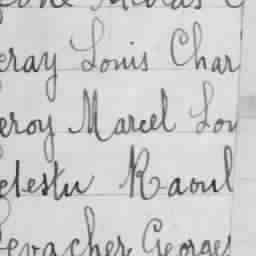 eray Louis Char
eroy Marcel Lou
elestu Raoul
evacher Georges